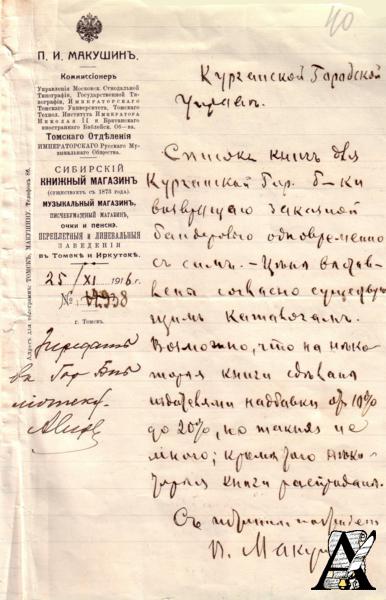 40
П. И. МАКУШИНЪ.
Коммиссіонеръ
Управленія Московск. Синодальной
Типографіи, Государственной Ти-
пографіи, ИМПЕРАТОРСКАГО
Томскаго Университета, Томскаго
Технол. Института ИМПЕРАТОРА
НИКОЛАЯ II и Британскаго
иностраннаго Библейск. Об-ва.
Томскаго Отдѣленія
ИМПЕРАТОРСКАГО Русскаго Му-
зыкальнаго Общества.
СИБИРСКІЙ
КНИЖНЫЙ МАГАЗИНЪ
(СУЩЕСТВУЕТЪ СЪ 1873 ГОДА).
МУЗЫКАЛЬНЫЙ МАГАЗИНЪ,
ПИСЧЕБУМАЖНЫЙ МАГАЗИНЪ,
ОЧКИ и ПЕНСНЭ.
ПЕРЕПЛЕТНЫЯ и ЛИНЕВАЛЬНЫЯ
ЗАВЕДЕНІЯ
въ Томскѣ и Иркутскѣ.
25/XI 1916 г.
№ 42938
г. Томскъ.
Адресъ для телеграммъ: ТОМСКЪ, МАКУШИНУ. Телефонъ
Передать
въ Гор Биб
лиотеку
Курганской Городской
Управѣ.
Списокъ книгъ для
Курганской Гор. б-ки
возвращаю заказной
бандеролью одновременно
съ симъ. - Цѣна
согласно существую
щимъ каталогамъ.
Возможно, что на нѣко
торыя книги сдѣланы
издателями надбавки отъ 10%
до 20%, но такихъ не
много; кромѣ того нѣко
торыя книги распроданы.
Съ
П. Макушинъ
А